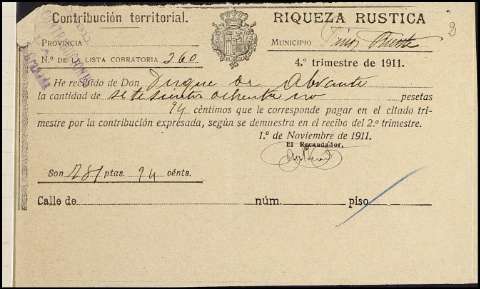 Contribución territorial.
RIQUEZA RUSTICA
PROVINCIA
MUNICIPIO Pinos Puente
N.º DE LA LISTA COBRATORIA 260
4.º trimestre de 1911.
He recibido de Don Duque de Abrante
la cantidad de setesientas ochenta uno pesetas
94 céntimos que le corresponde pagar en el citado tri-
mestre por la contribución expresada, según se demuestra en el recibo del 2.º trimestre.
1.º de Noviembre de 1911.
El Recaudador,
Son 781 ptas. 94 cénts.
Calle de núm. piso